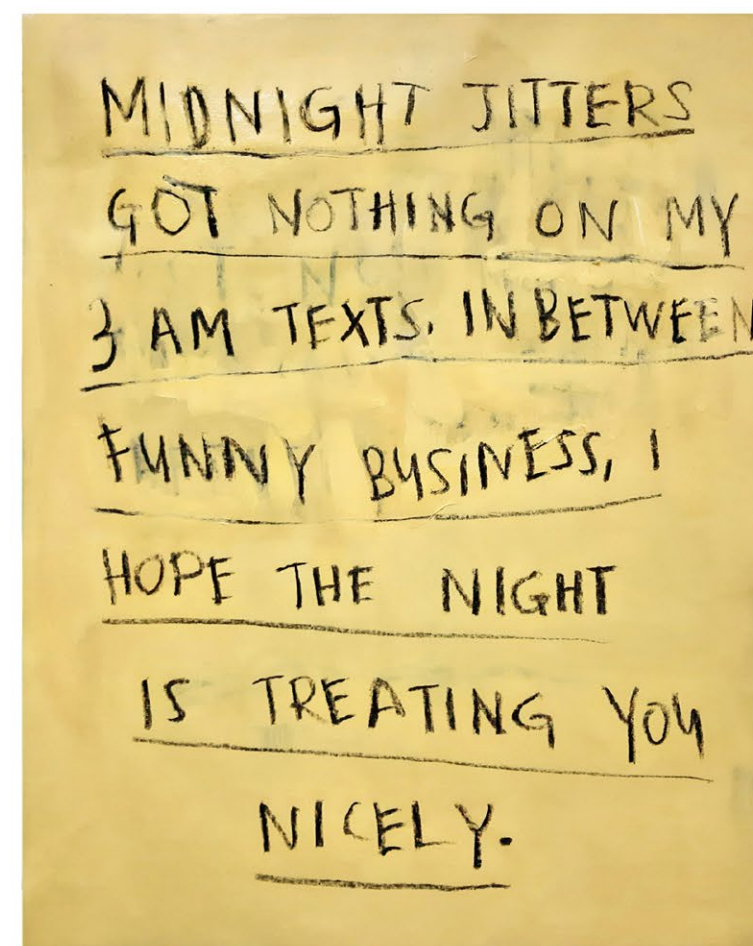 MIDNIGHT JITTERS
GOT NOTHING ON MY
3 AM TEXTS. IN BETWEEN
FUNNY BUSINESS, I
HOPE THE NIGHT
IS TREATING YOU
NICELY.